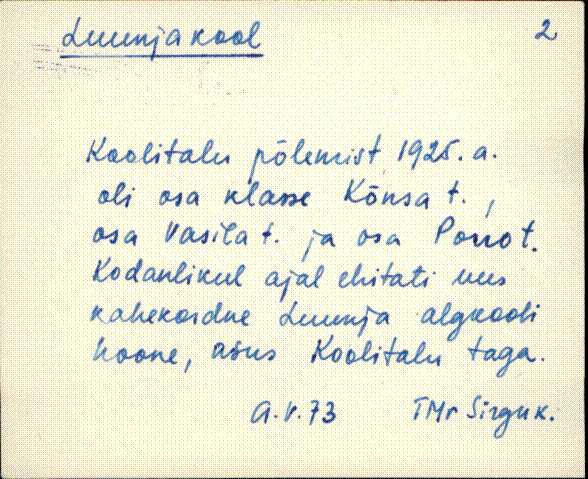 Luunja kool 2
Koolitalu põlemist 1925. a.
oli osa klasse Kõnsa t.,
osa Vasila t. ja osa Porro t.
Kodanlikul ajal ehitati uus
kahekordne Luunja algkooli
hoone, asus Koolitalu taga.
A.V.73 TMr Sirguk.